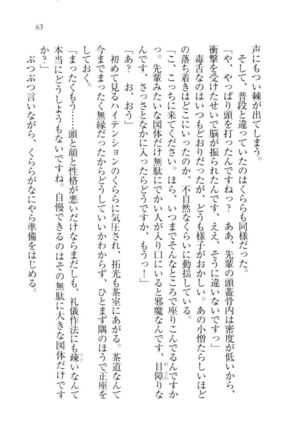 63
声にもつい棘が出てしまう。
そして、普段と違っていたのはくららも同様だった。
「や、やっぱり頭を打ったんですねっ？　ああ、先輩の頭蓋骨内は密度が低いから、
衝撃を受けたせいで脳が振られたんです、ええ、そうに違いないですっ」
毒舌なのはいつもどおりだったが、どうも様子がおかしい。あの小憎たらしいほど
の落ち着きはどこにいったのか、不自然なくらいに動揺している。
「こ、こっちに来てください。ほら、いつまでそんなところで座りこんでるんですか
っ。先輩みたいな図体だけ無駄にでかい人が入り口にいると邪魔なんです、目障りな
んです、さっさとなかに入ったらどうですか、もうっ！」
「あ？　お、おう」
初めて見るハイテンションのくららに気圧され、拓光も茶室にあがる。茶道なんて
今までまったく無縁だったからどうしていいかわからず、ひとまず隅のほうで正座を
しておく。
「まったくもうっ……頭と顔と性格が悪いだけならまだしも、礼儀作法にも疎いなんて
本当にどうしようもないですね。自慢できるのはその無駄に大きな図体だけです
か？」
ぶつぶつ言いながら、くららがなにやら準備をはじめる。